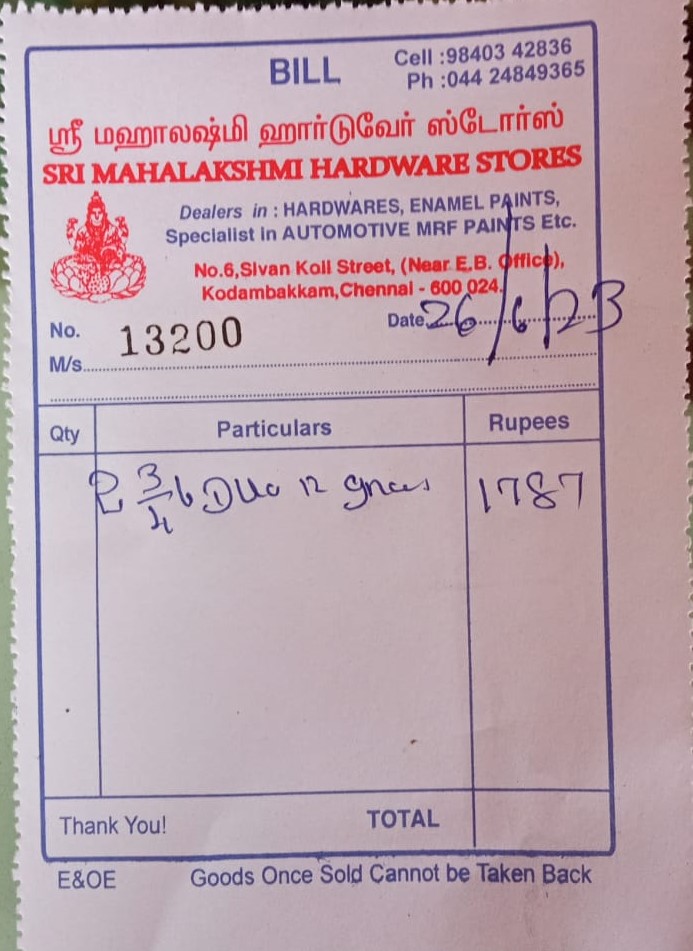 BILL
Cell :98403 42836
Ph :044 24849365
ஸ்ரீ மஹாலஷ்மி ஹார்டுவேர் ஸ்டோர்ஸ்
SRI MAHALAKSHMI HARDWARE STORES
Dealers in : HARDWARES, ENAMEL PAINTS,
Specialist in AUTOMOTIVE MRF PAINTS Etc.
No.6,Sivan Koil Street, (Near E.B. Office),
Kodambakkam,Chennai - 600 024.
No. 13200 Date 26/6/23
M/s.
Qty Particulars Rupees
3/4 12 1787
Thank You! TOTAL
E&OE Goods Once Sold Cannot be Taken Back